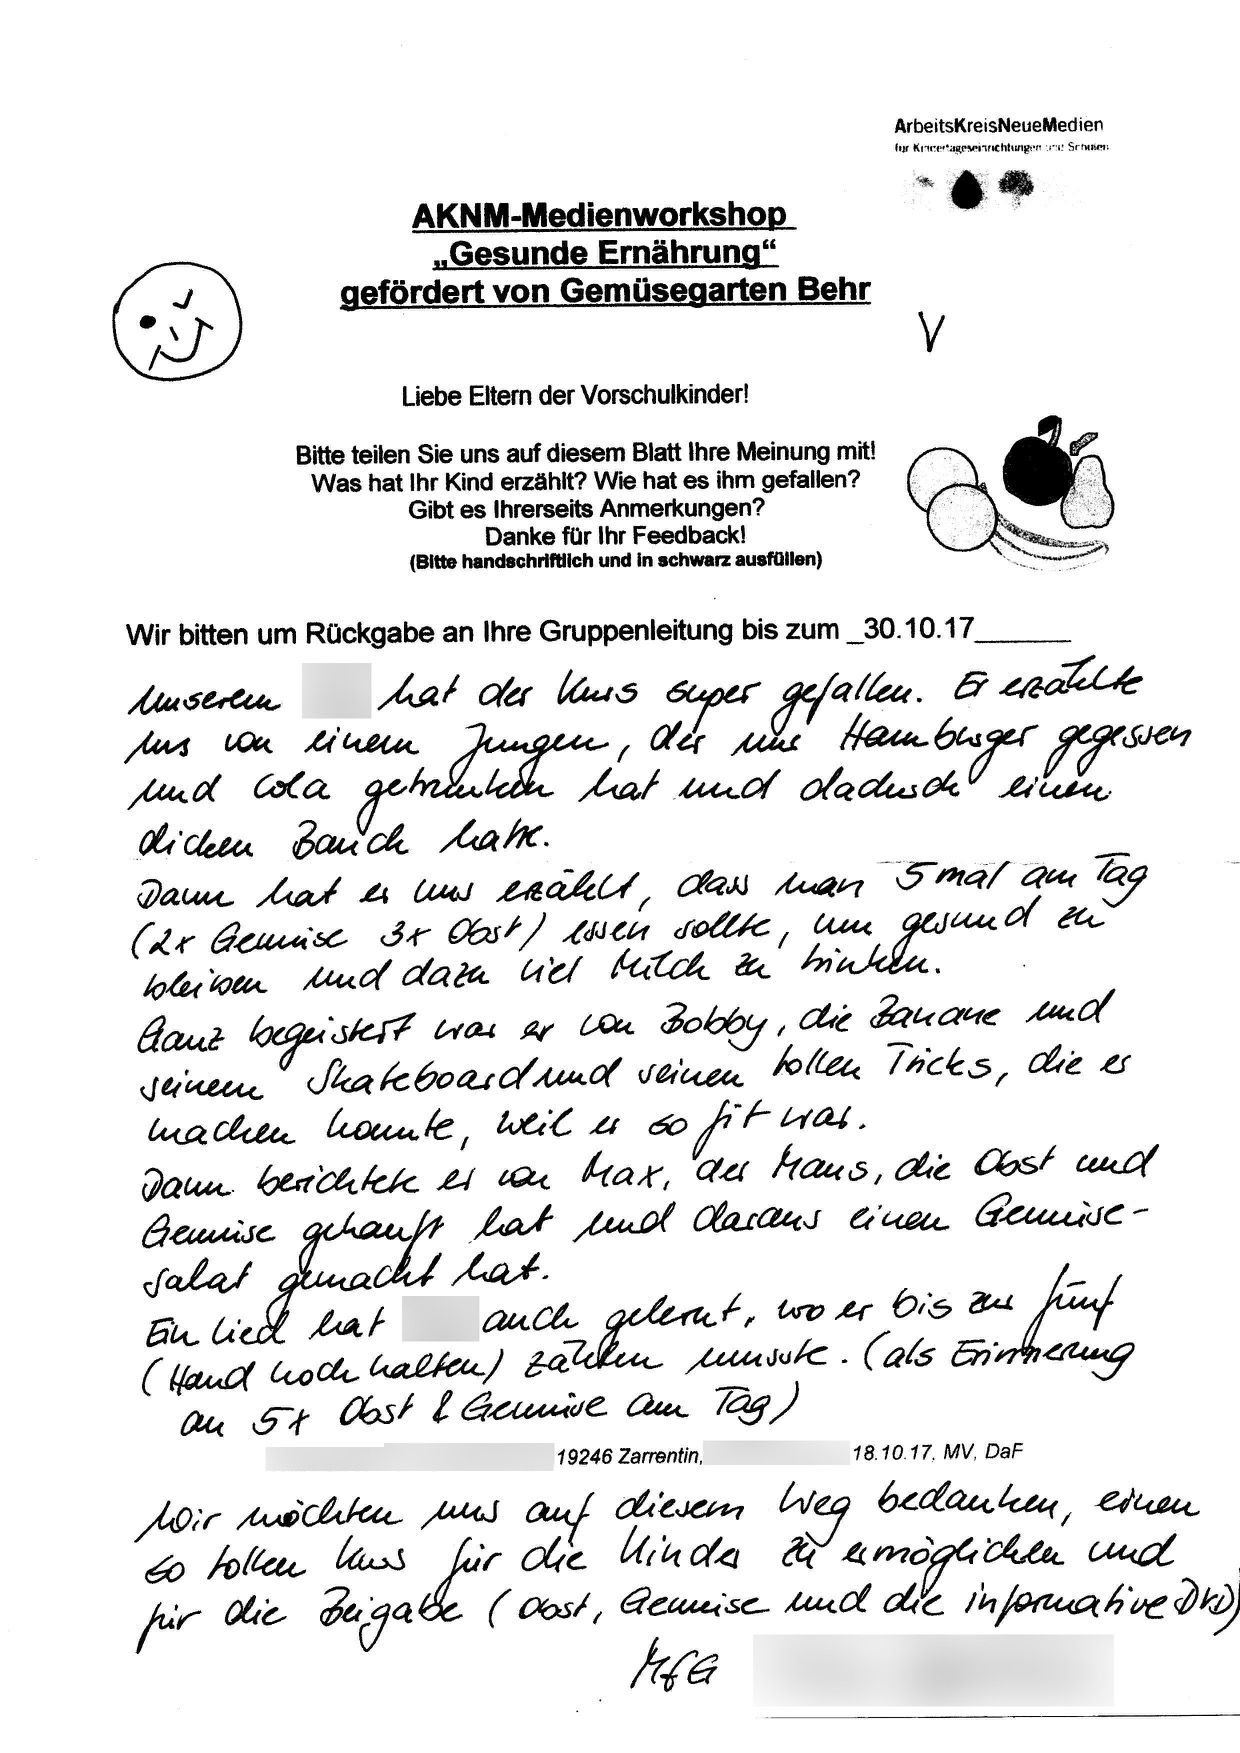 ArbeitsKreisNeueMedien
für Kindertageseinrichtungen und Schulen
AKNM-Medienworkshop
„Gesunde Ernährung“
gefördert von Gemüsegarten Behr
V
Liebe Eltern der Vorschulkinder!
Bitte teilen Sie uns auf diesem Blatt Ihre Meinung mit!
Was hat Ihr Kind erzählt? Wie hat es ihm gefallen?
Gibt es Ihrerseits Anmerkungen?
Danke für Ihr Feedback!
(Bitte handschriftlich und in schwarz ausfüllen)
Wir bitten um Rückgabe an Ihre Gruppenleitung bis zum _30.10.17______
Unserem hat der Kurs super gefallen. Er erzählte
uns von einem Jungen, der nur Hamburger gegessen
und Cola getrunken hat und dadurch einen
dicken Bauch hatte.
Dann hat er uns erzählt, dass man 5 mal am Tag
(2x Gemüse 3x Obst) essen sollte, um gesund zu
bleiben und dazu viel Milch zu trinken.
Ganz begeistert war er von Bobby, die Banane und
seinem Skateboard und seinen tollen Tricks, die er
machen konnte, weil er so fit war.
Dann berichtete er von Max, der Maus, die Obst und
Gemüse gekauft hat und daraus einen Gemüse-
salat gemacht hat.
Ein Lied hat auch gelernt, wo er bis zur fünf
(Hand hoch halten) zählen musste. (als Erinnerung
an 5x Obst & Gemüse am Tag)
19246 Zarrentin, 18.10.17, MV, DaF
Wir möchten uns auf diesem Weg bedanken, einen
so tollen Kurs für die Kinder zu ermöglichen und
für die Beigabe (Obst, Gemüse und die informative DVD)
MfG